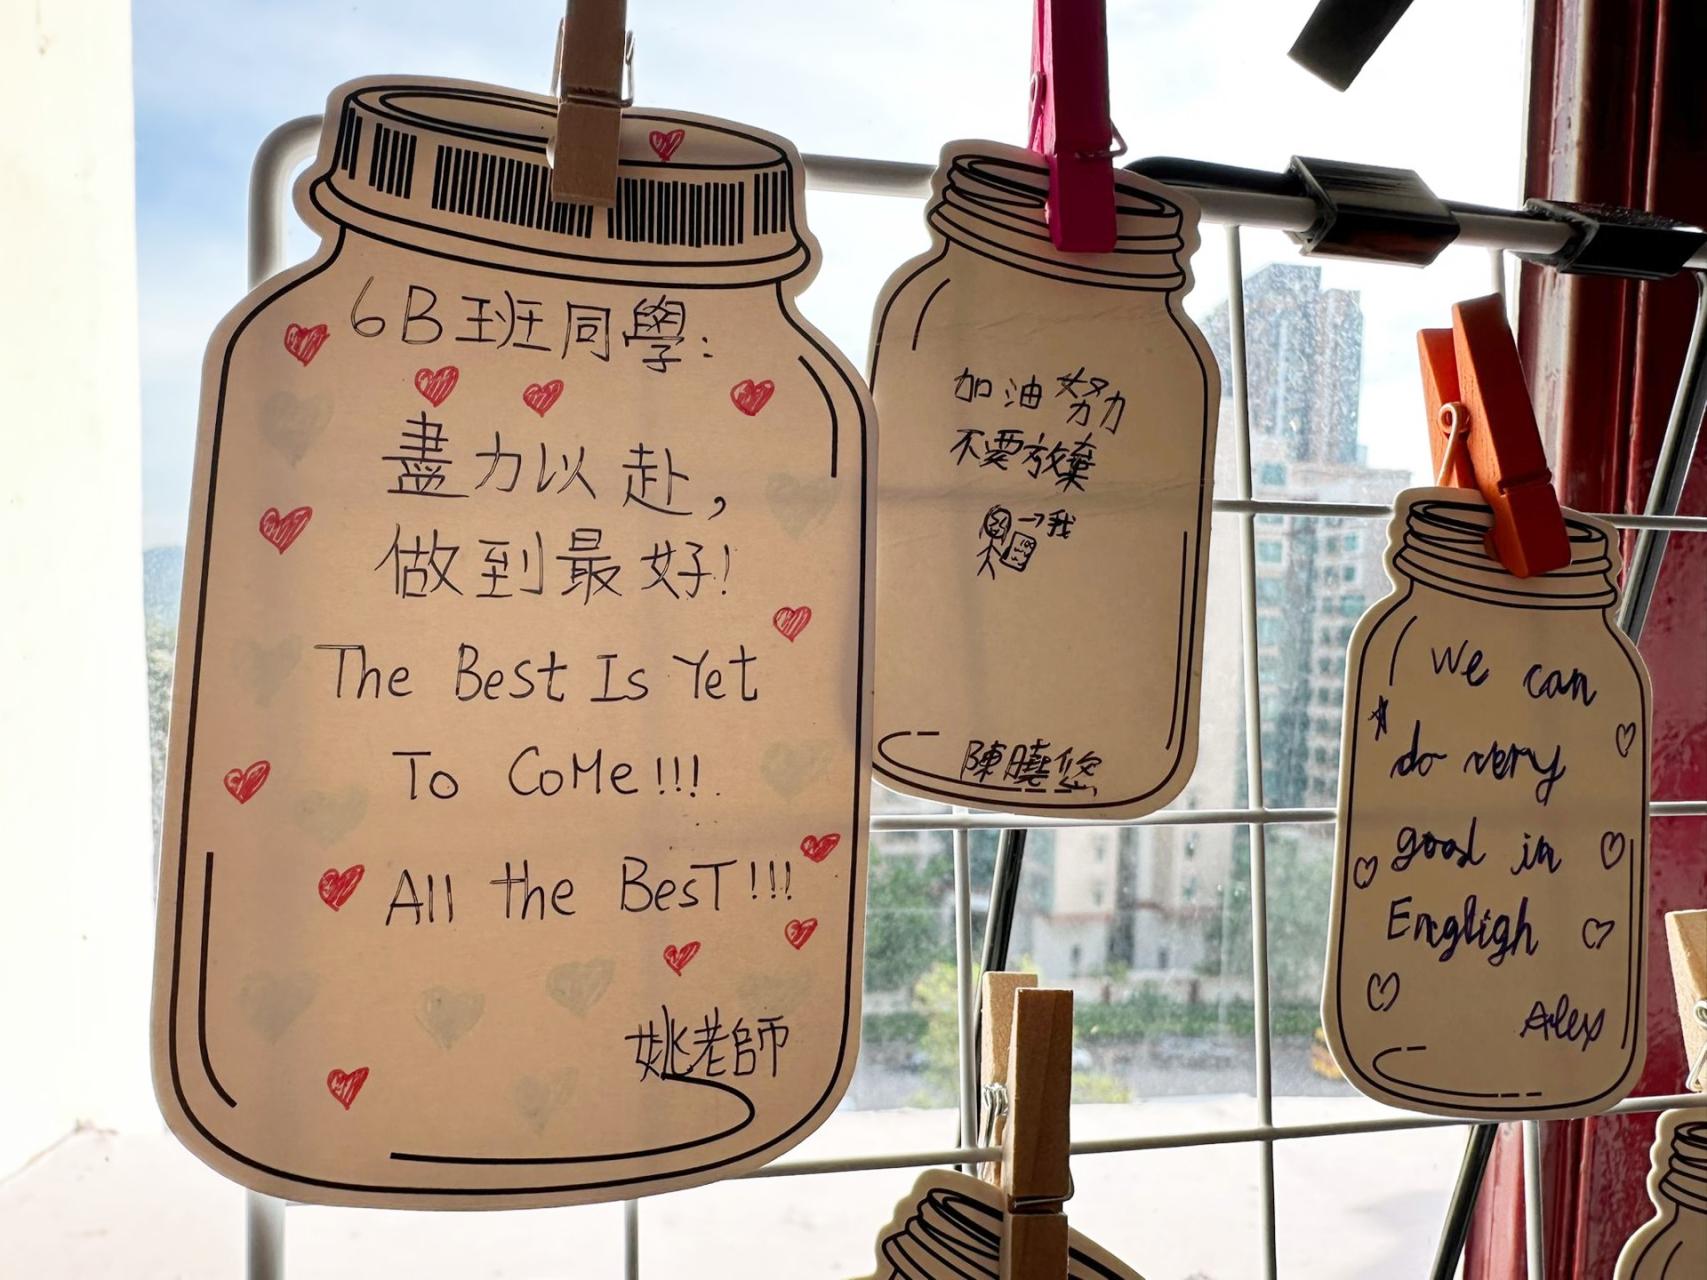 6B班同學:
盡力以赴,
做到最好!
The Best Is Yet
To CoMe!!!
All the BesT!!!
姚老師
加油努力
不要放棄
→我
陳曉悠
We can
do very
good in
Engligh
Alex